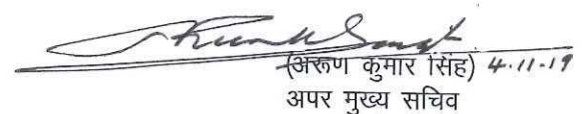 (अरूण कुमार सिंह) 4.11.19
अपर मुख्य सचिव